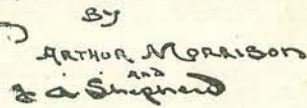 BY
ARTHUR MORRISON
AND
J A Shepherd